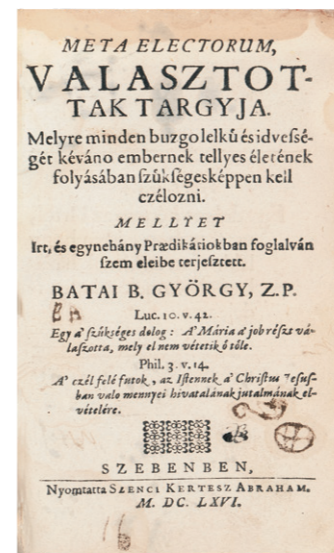 META ELECTORUM,
VALASZTOT-
TAK TARGYJA.
Melyre minden buzgo lelkű és idvessé-
gét kéváno embernek tellyes életének
folyásában szükségesképpen kell
czélozni.
MELLYET
Irt, és egynehány Prædikátiokban foglalván
szem eleibe terjesztett.
BATAI B. GYÖRGY, Z.P.
Luc. 10. v. 42.
Egy a' szükséges dolog: A' Mária a' job részt vá-
lasztotta, mely el nem vétetik ő tőle.
Phil. 3. v. 14.
A' czél felé futok, az Istennek a' Christus Jesus-
ban valo mennyei hivatalának jutalmának el-
vételére.
SZEBENBEN,
Nyomtatta SZENCI KERTESZ ABRAHAM.
M. DC. LXVI.